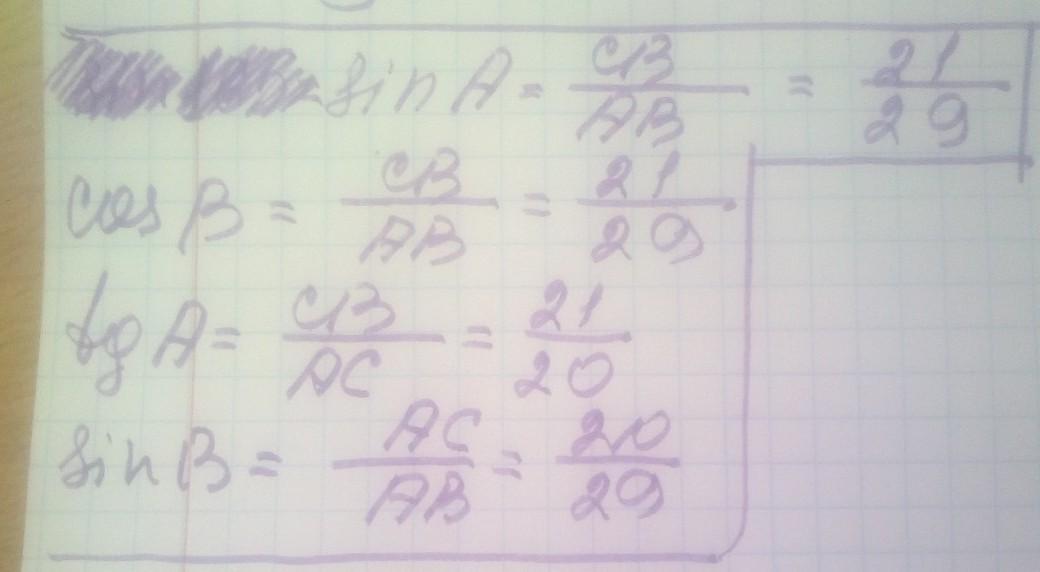 sin A = CB/AB = 21/29
cos B = CB/AB = 21/29
tg A = CB/AC = 21/20
sin B = AC/AB = 20/29